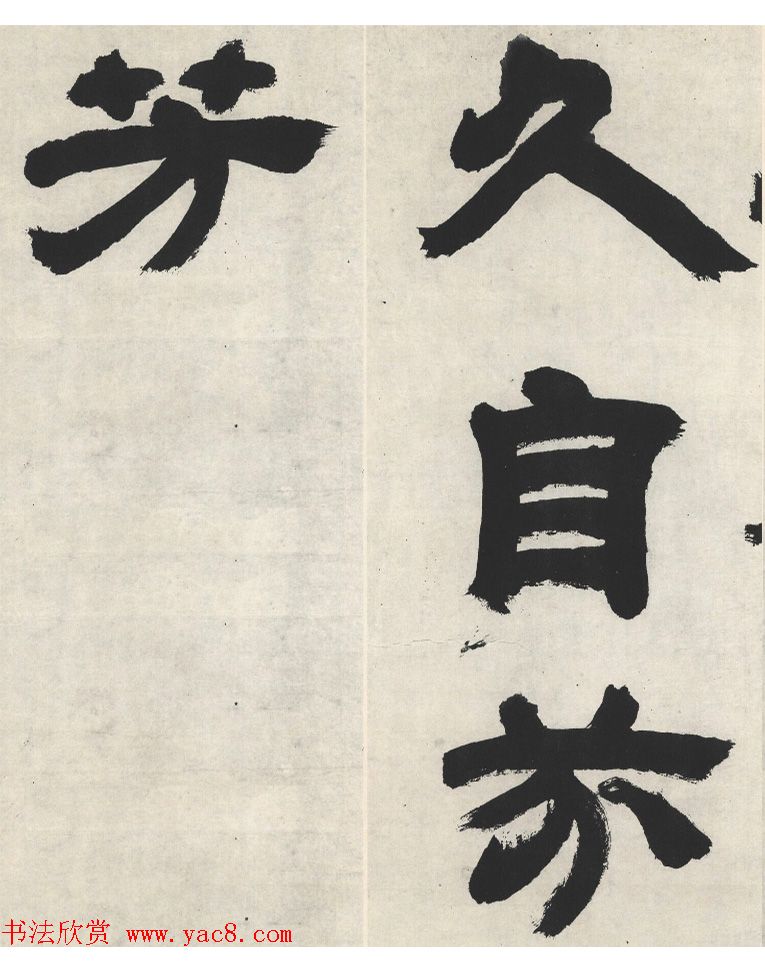 久自芬
芳
书法欣赏 www.yac8.com